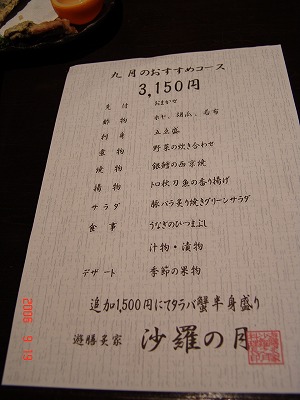 九月のおすすめコース
3,150円
先付 おまかせ
酢物 ホヤ、胡瓜、若布
刺身 五点盛
煮物 野菜の炊き合わせ
焼物 銀鱈の西京焼
揚物 トロ秋刀魚の香り揚げ
サラダ 豚バラ炙り焼きグリーンサラダ
食事 うなぎのひつまぶし
汁物・漬物
デザート 季節の果物
追加1,500円にてタラバ蟹半身盛り
遊膳炙家 沙羅の月
2006 9 19